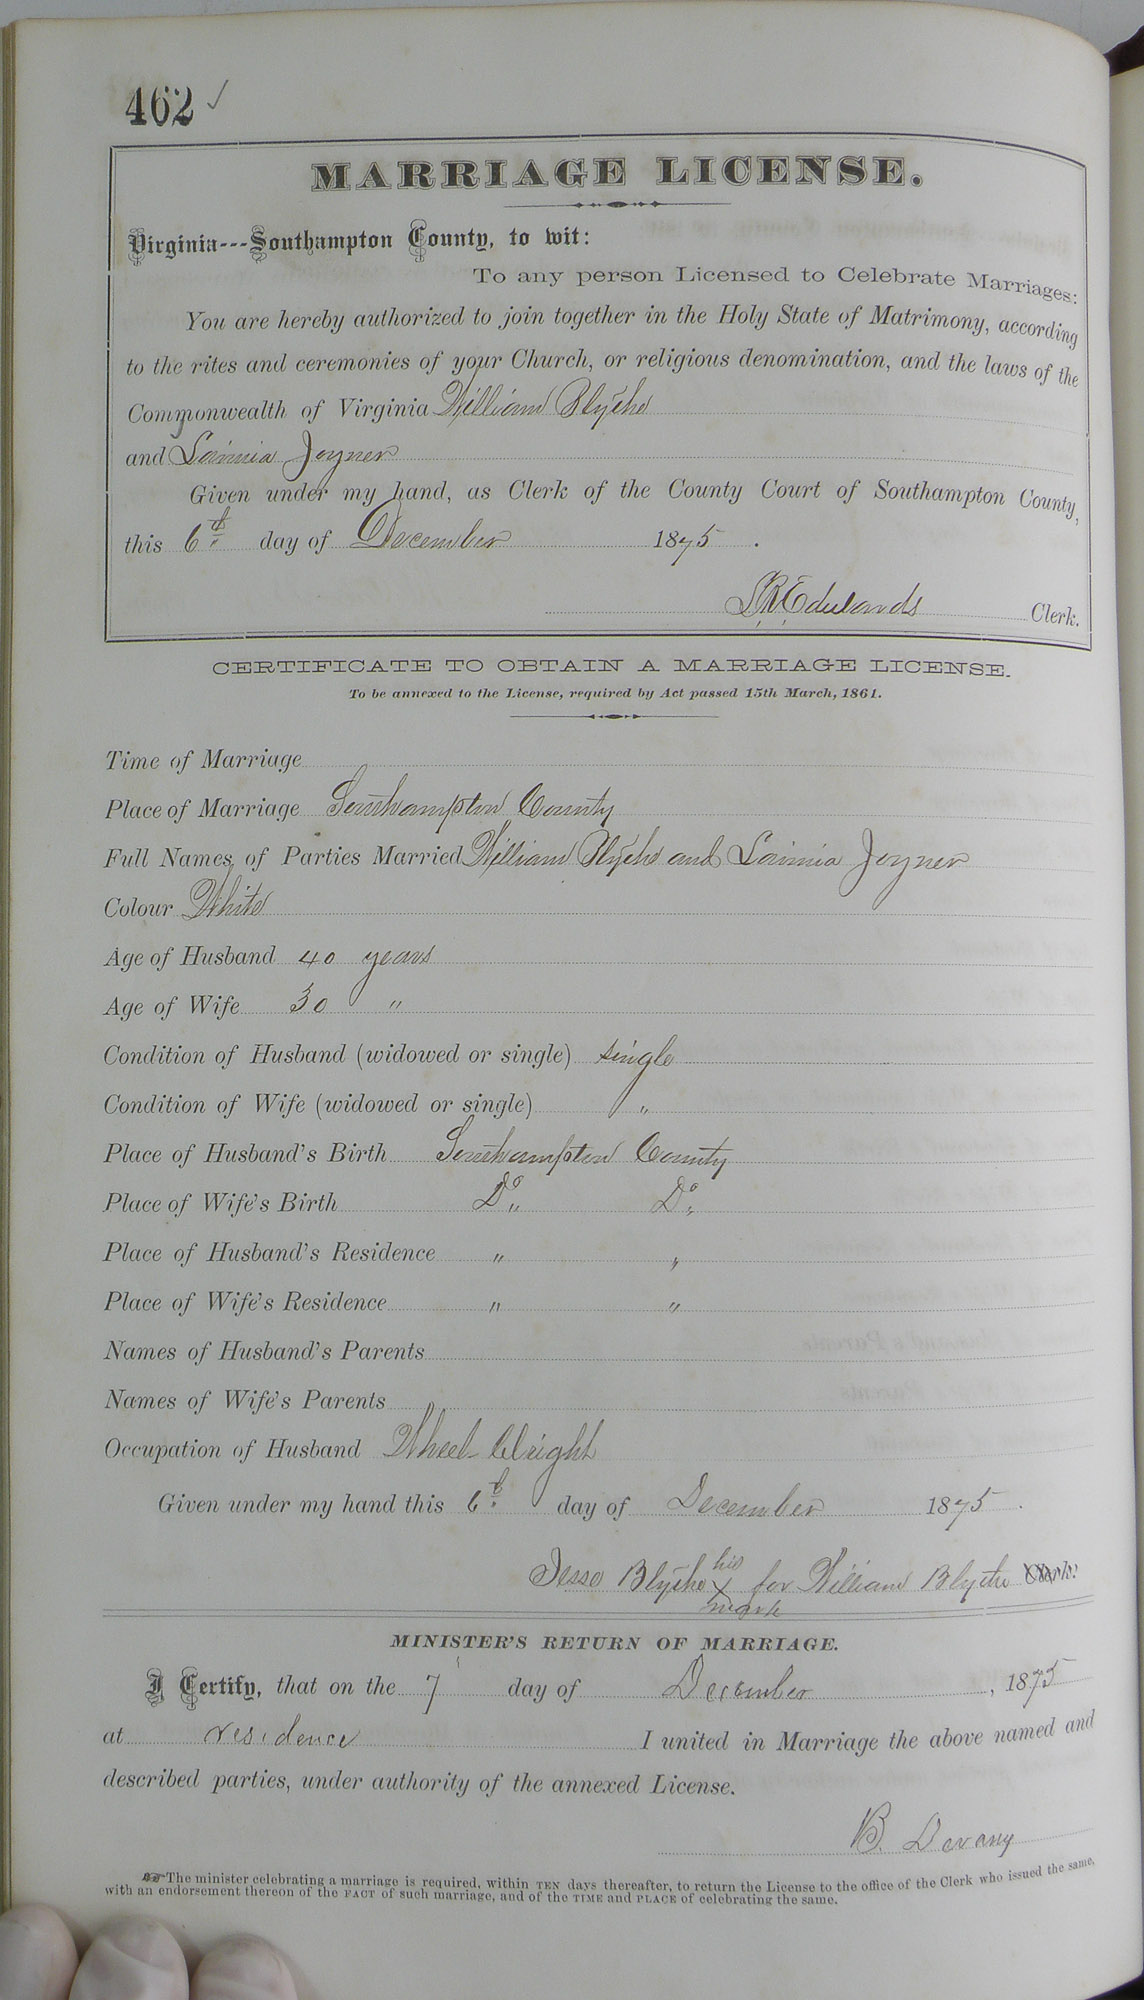 462 ✓
MARRIAGE LICENSE.
Virginia---Southampton County, to wit:
To any person Licensed to Celebrate Marriages:
You are hereby authorized to join together in the Holy State of Matrimony, according
to the rites and ceremonies of your Church, or religious denomination, and the laws of the
Commonwealth of Virginia William Blythe
and Joyner
Given under my hand, as Clerk of the County Court of Southampton County,
this 6th day of December 1875.
Edwards Clerk.
CERTIFICATE TO OBTAIN A MARRIAGE LICENSE.
To be annexed to the License, required by Act passed 15th March, 1861.
Time of Marriage
Place of Marriage Southampton County
Full Names of Parties Married William Blythe and Joyner
Colour White
Age of Husband 40 years
Age of Wife 30 "
Condition of Husband (widowed or single) single
Condition of Wife (widowed or single) "
Place of Husband's Birth Southampton County
Place of Wife's Birth Do " Do "
Place of Husband's Residence " "
Place of Wife's Residence " "
Names of Husband's Parents
Names of Wife's Parents
Occupation of Husband Wheel Wright
Given under my hand this 6th day of December 1875.
his
Jesse Blythe X for William Blythe Clerk.
mark
MINISTER'S RETURN OF MARRIAGE.
I Certify, that on the 7 day of December, 1875
at residence I united in Marriage the above named and
described parties, under authority of the annexed License.
B. Devany
☞ The minister celebrating a marriage is required, within TEN days thereafter, to return the License to the office of the Clerk who issued the same,
with an endorsement thereon of the FACT of such marriage, and of the TIME and PLACE of celebrating the same.